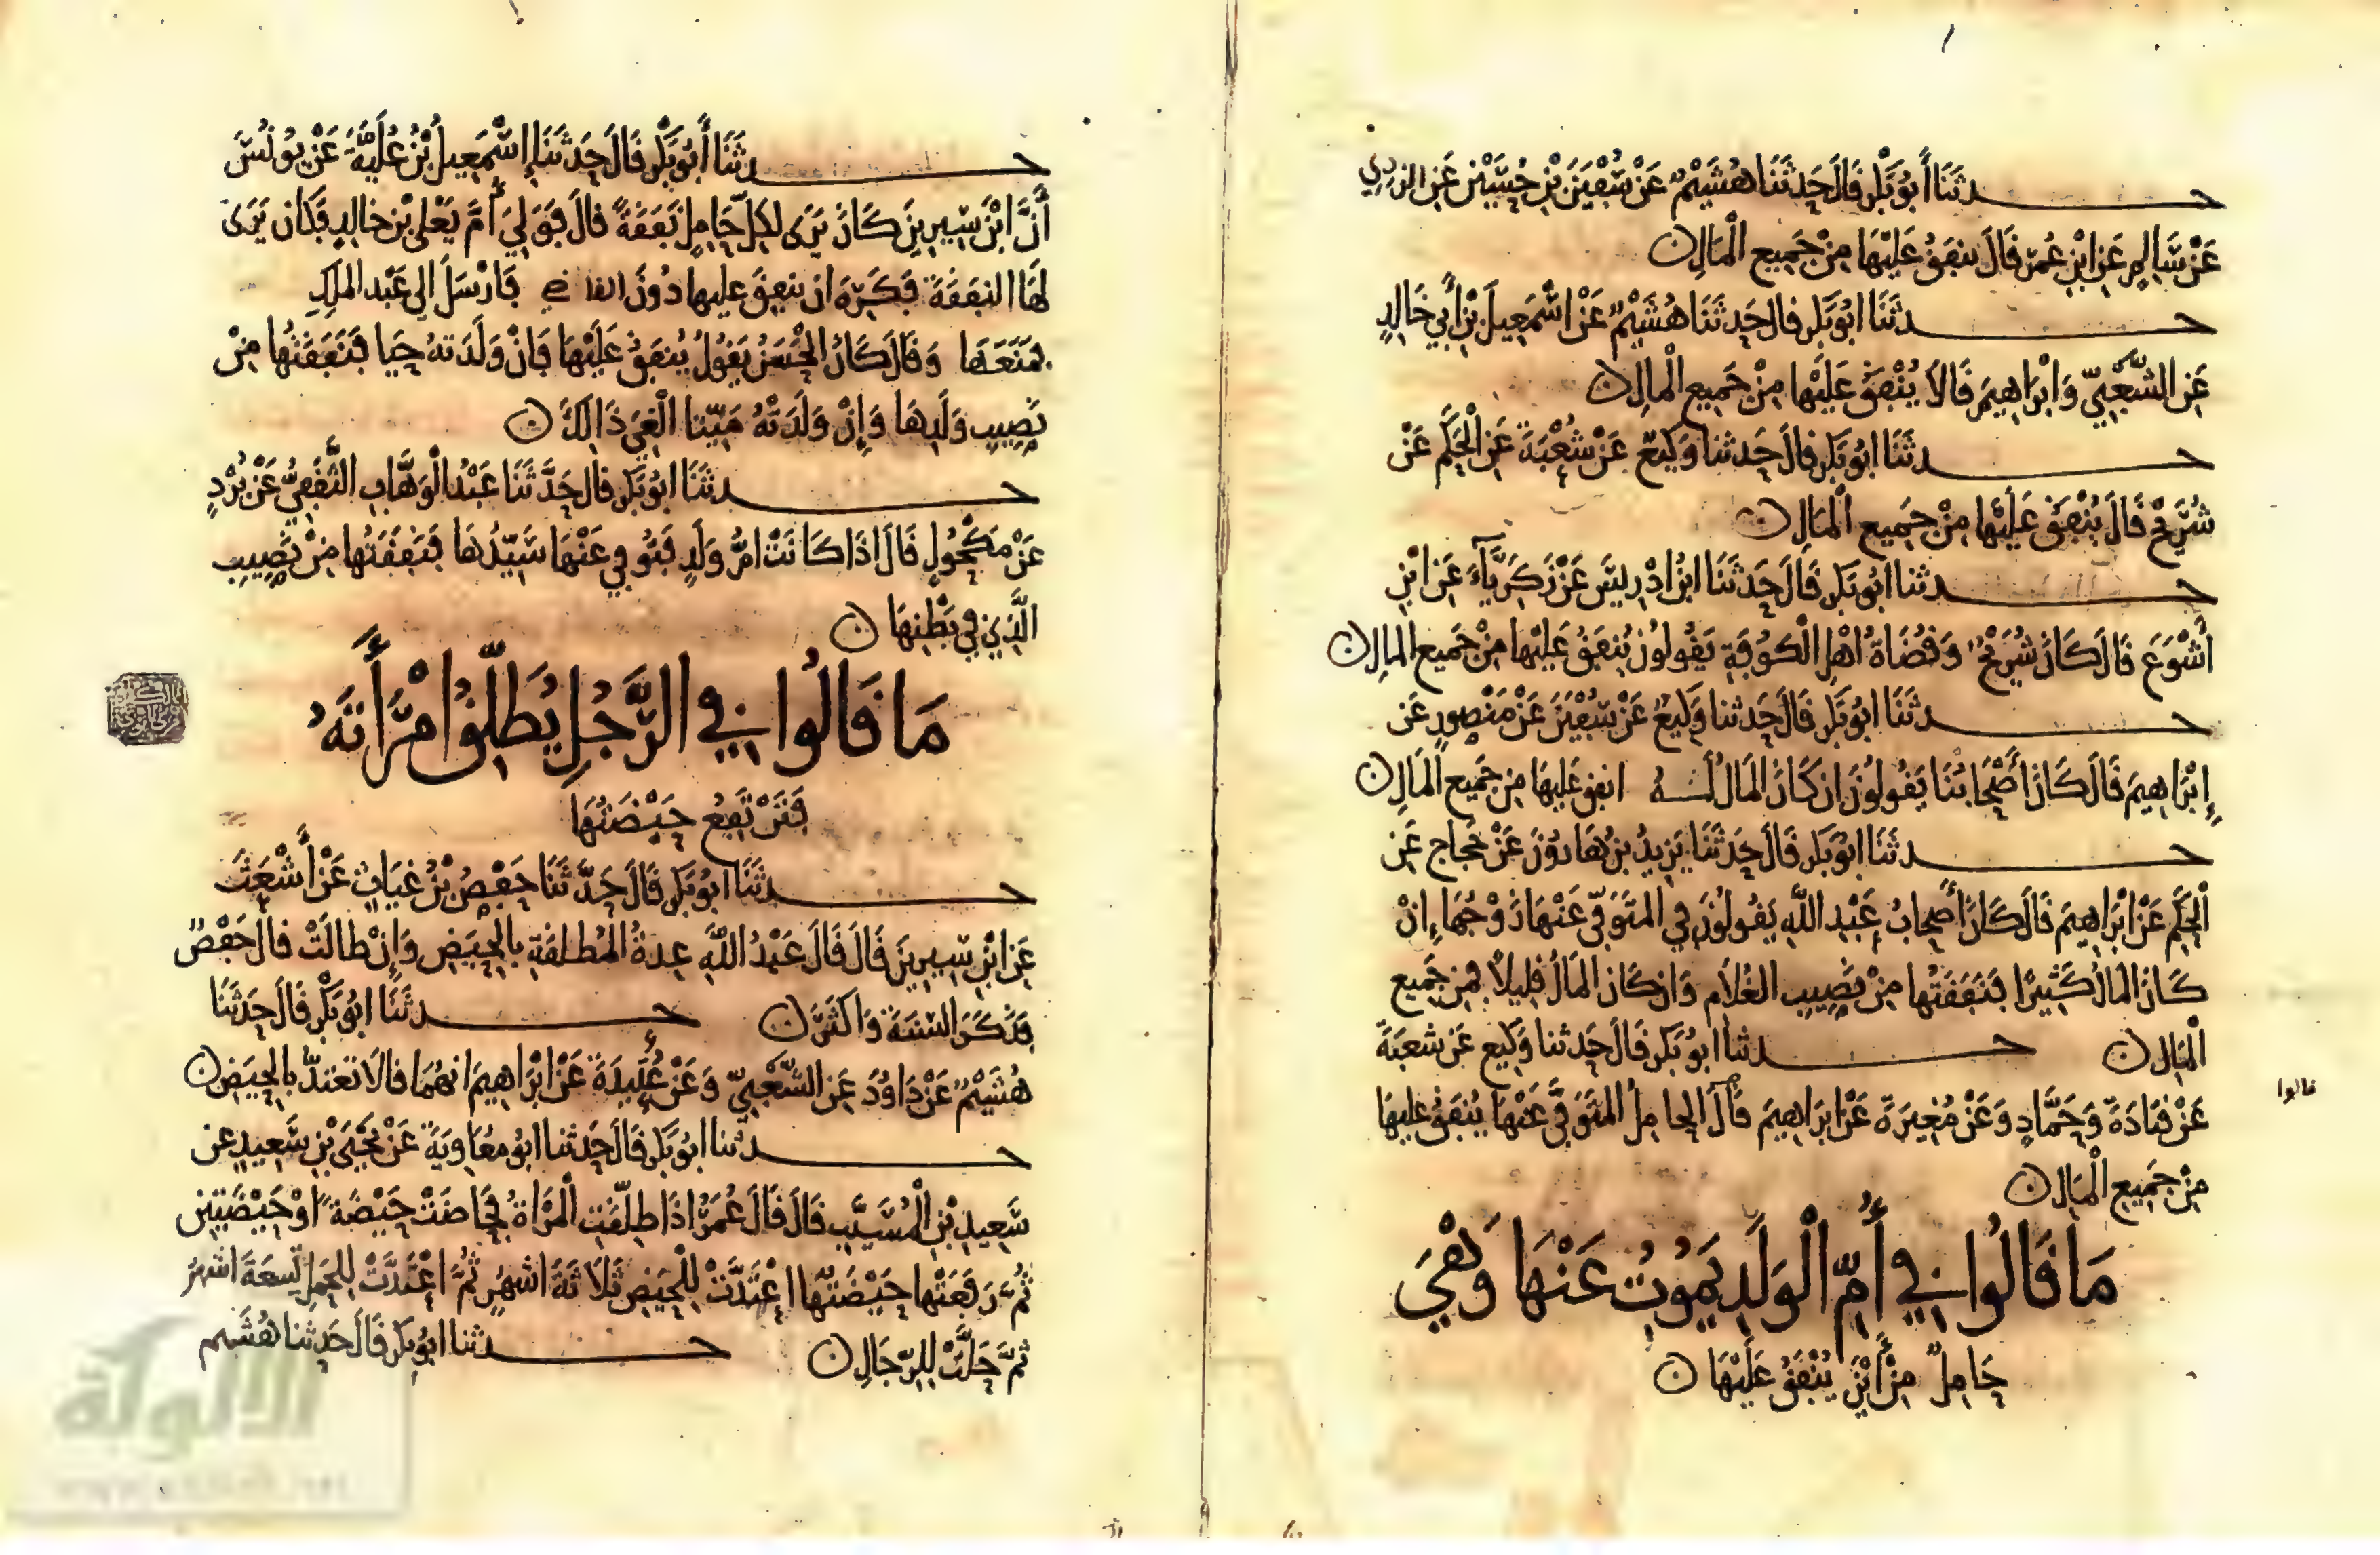 حدثنا أبو بكر قال حدثنا هشيم عن سفين بن حسين عن الزهري
عن سالم عن ابن عمر قال ينفق عليها من جميع المال
حدثنا ابو بكر قال حدثنا هشيم عن اسمعيل بن أبي خالد
عن الشعبي وابراهيم قالا ينفق عليها من جميع المال
حدثنا ابو بكر قال حدثنا وكيع عن شعبة عن الحكم عن
شريح قال ينفق عليها من جميع المال
حدثنا ابو بكر قال حدثنا ابن ادريس عن زكرياء عن ابن
أشوع قال كان شريح وقضاة اهل الكوفة يقولون ينفق عليها من جميع المال
حدثنا ابو بكر قال حدثنا وكيع عن سفين عن منصور عن
إبراهيم قال كان أصحابنا يقولون ان كان المال له انفق عليها من جميع المال
حدثنا ابو بكر قال حدثنا يزيد بن هارون عن حجاج عن
الحكم عن ابراهيم قال كان أصحاب عبد الله يقولون في المتوفى عنها زوجها إن
كان المال كثيرا فنفقتها من نصيب الغلام وان كان المال قليلا فمن جميع
المال حدثنا ابو بكر قال حدثنا وكيع عن شعبة
عن قتادة وحماد وعن مغيرة عن ابراهيم قال الحامل المتوفى عنها ينفق عليها
قالوا
من جميع المال
ما قالوا في أم الولد يموت عنها وهي
حامل من أين ينفق عليها
حدثنا أبو بكر قال حدثنا إسمعيل بن علية عن يونس
أن ابن سيرين كان يرى لكل حامل نفقة قال فولي أم يعلى بن خالد فكان يرى
لها النفقة فكره ان ينفق عليها دون القاضي فارسل الى عبد الملك
فمنعها وقال كان الحسن يقول ينفق عليها فان ولدته حيا فنفقتها من
نصيب ولدها وإن ولدته ميتا الغي ذالك
حدثنا ابو بكر قال حدثنا عبد الوهاب الثقفي عن برد
عن مكحول قال اذا كانت ام ولد فتوفي عنها سيدها فنفقتها من نصيب
الذي في بطنها
ما قالوا في الرجل يطلق امرأته
فترتفع حيضتها
حدثنا ابو بكر قال حدثنا حفص بن غياث عن أشعث
عن ابن سيرين قال قال عبد الله عدة المطلقة بالحيض وإن طالت قال حفص
فذكر السنة واكثر حدثنا ابو بكر قال حدثنا
هشيم عن داوود عن الشعبي وعن عبيدة عن ابراهيم انهما قالا تعتد بالحيض
حدثنا ابو بكر قال حدثنا ابو معاوية عن يحيى بن سعيد عن
سعيد بن المسيب قال قال عمر اذا طلقت المرأة فحاضت حيضة او حيضتين
ثم رفعتها حيضتها اعتدت للحيض ثلاثة اشهر ثم اعتدت للحمل تسعة اشهر
ثم حلت للرجال حدثنا ابو بكر قال حدثنا هشيم
الألوكة